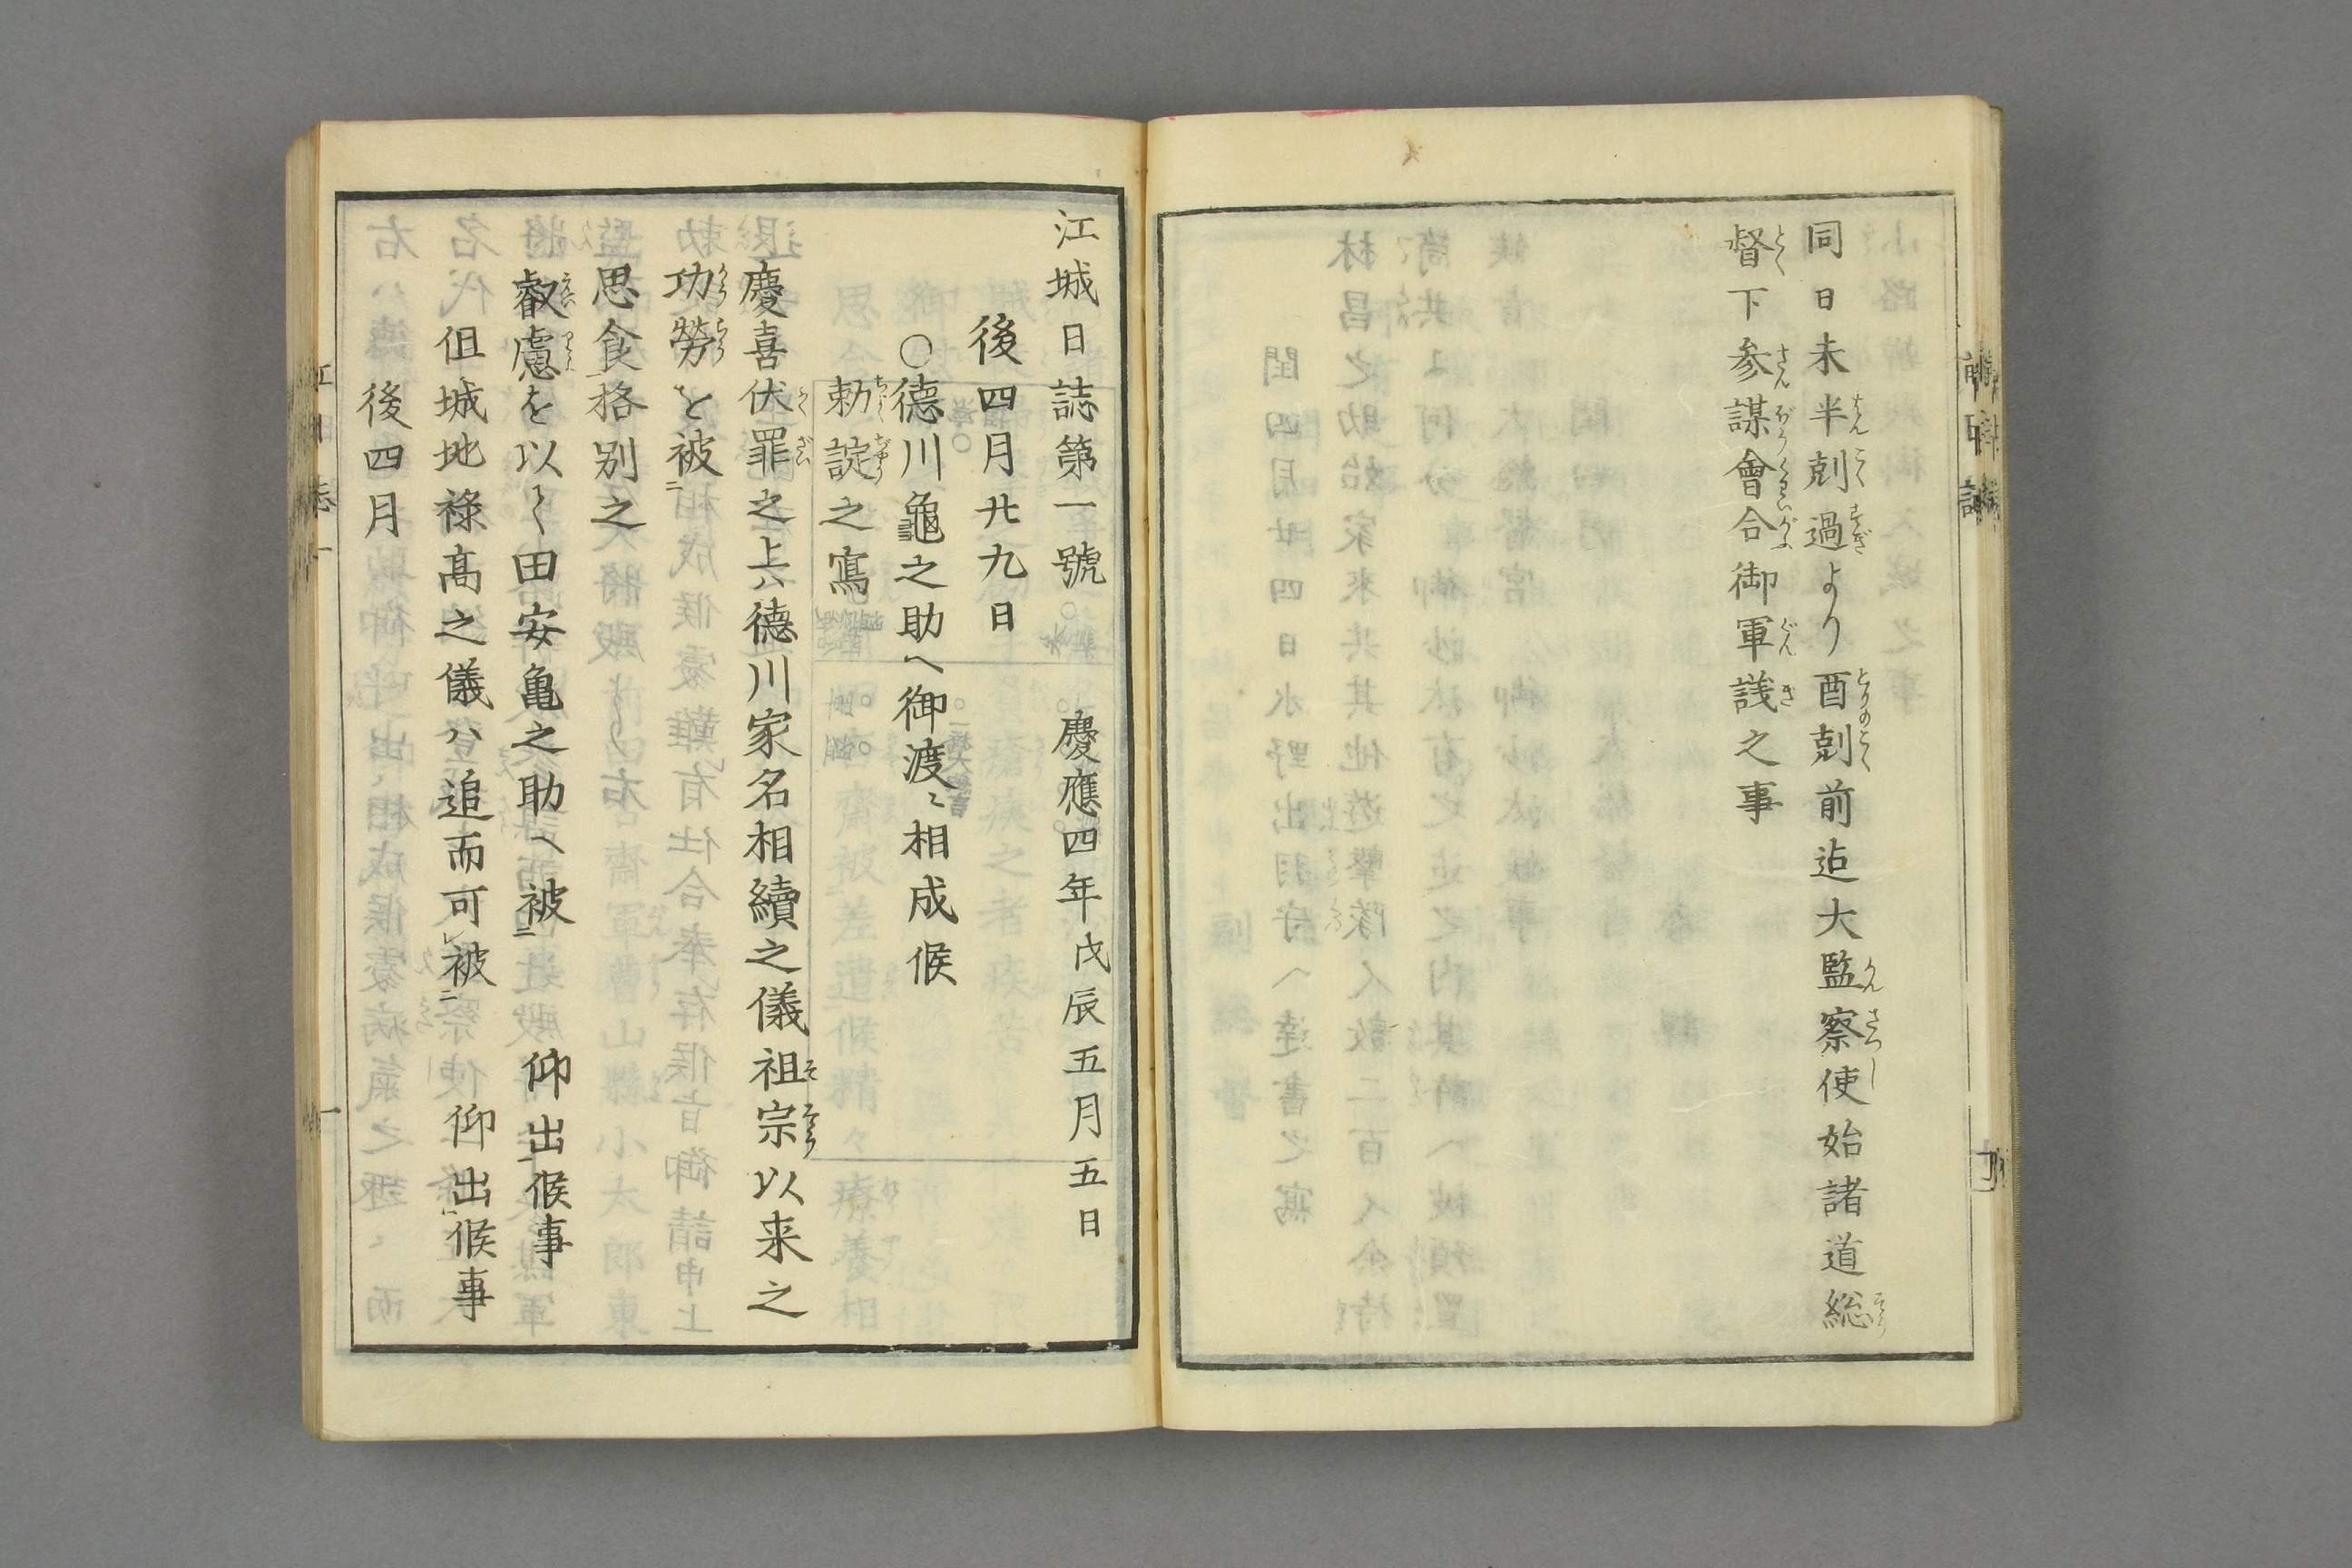 同日未半剋過より酉剋前迠大監察使始諸道総
督下参謀會合御軍議之事
江城日誌第一號 慶應四年戊辰五月五日
後四月廿九日
○德川龜之助へ御渡ニ相成候
勅諚之寫
慶喜伏罪之上ハ德川家名相續之儀祖宗以来之
功勞を被
思食格别之
叡慮を以て田安亀之助へ被 仰出候事
但城地祿高之儀ハ追而可被 仰出候事
後四月